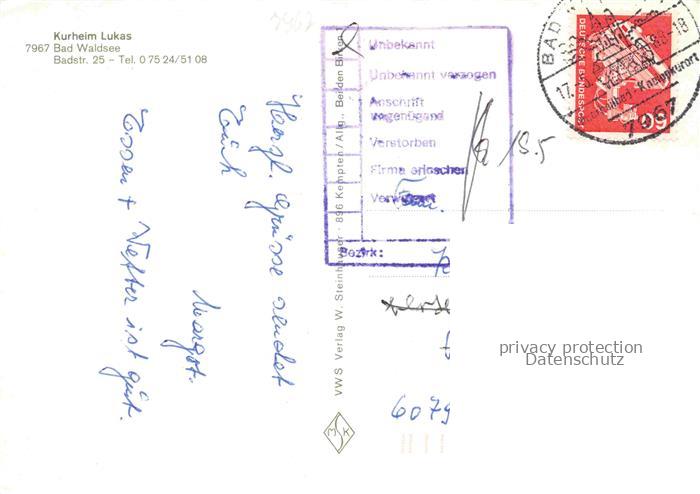 Kurheim Lukas
7967 Bad Waldsee
Badstr. 25 – Tel. 0 75 24/51 08
Herzl. Grüsse sendet
Euch
Margot.
Essen + Wetter ist gut.
VWS Verlag W. Steinhauser · 896 Kempten/Allg., Bei den Birken
MSK
Unbekannt
Unbekannt verzogen
Anschrift
ungenügend
Verstorben
Firma erloschen
Verweigert
Bezirk:
18.5
Fam.
6079
BAD
17.
-18
7967
Kneippkurort
DEUTSCHE BUNDESPOST
60
privacy protection
Datenschutz